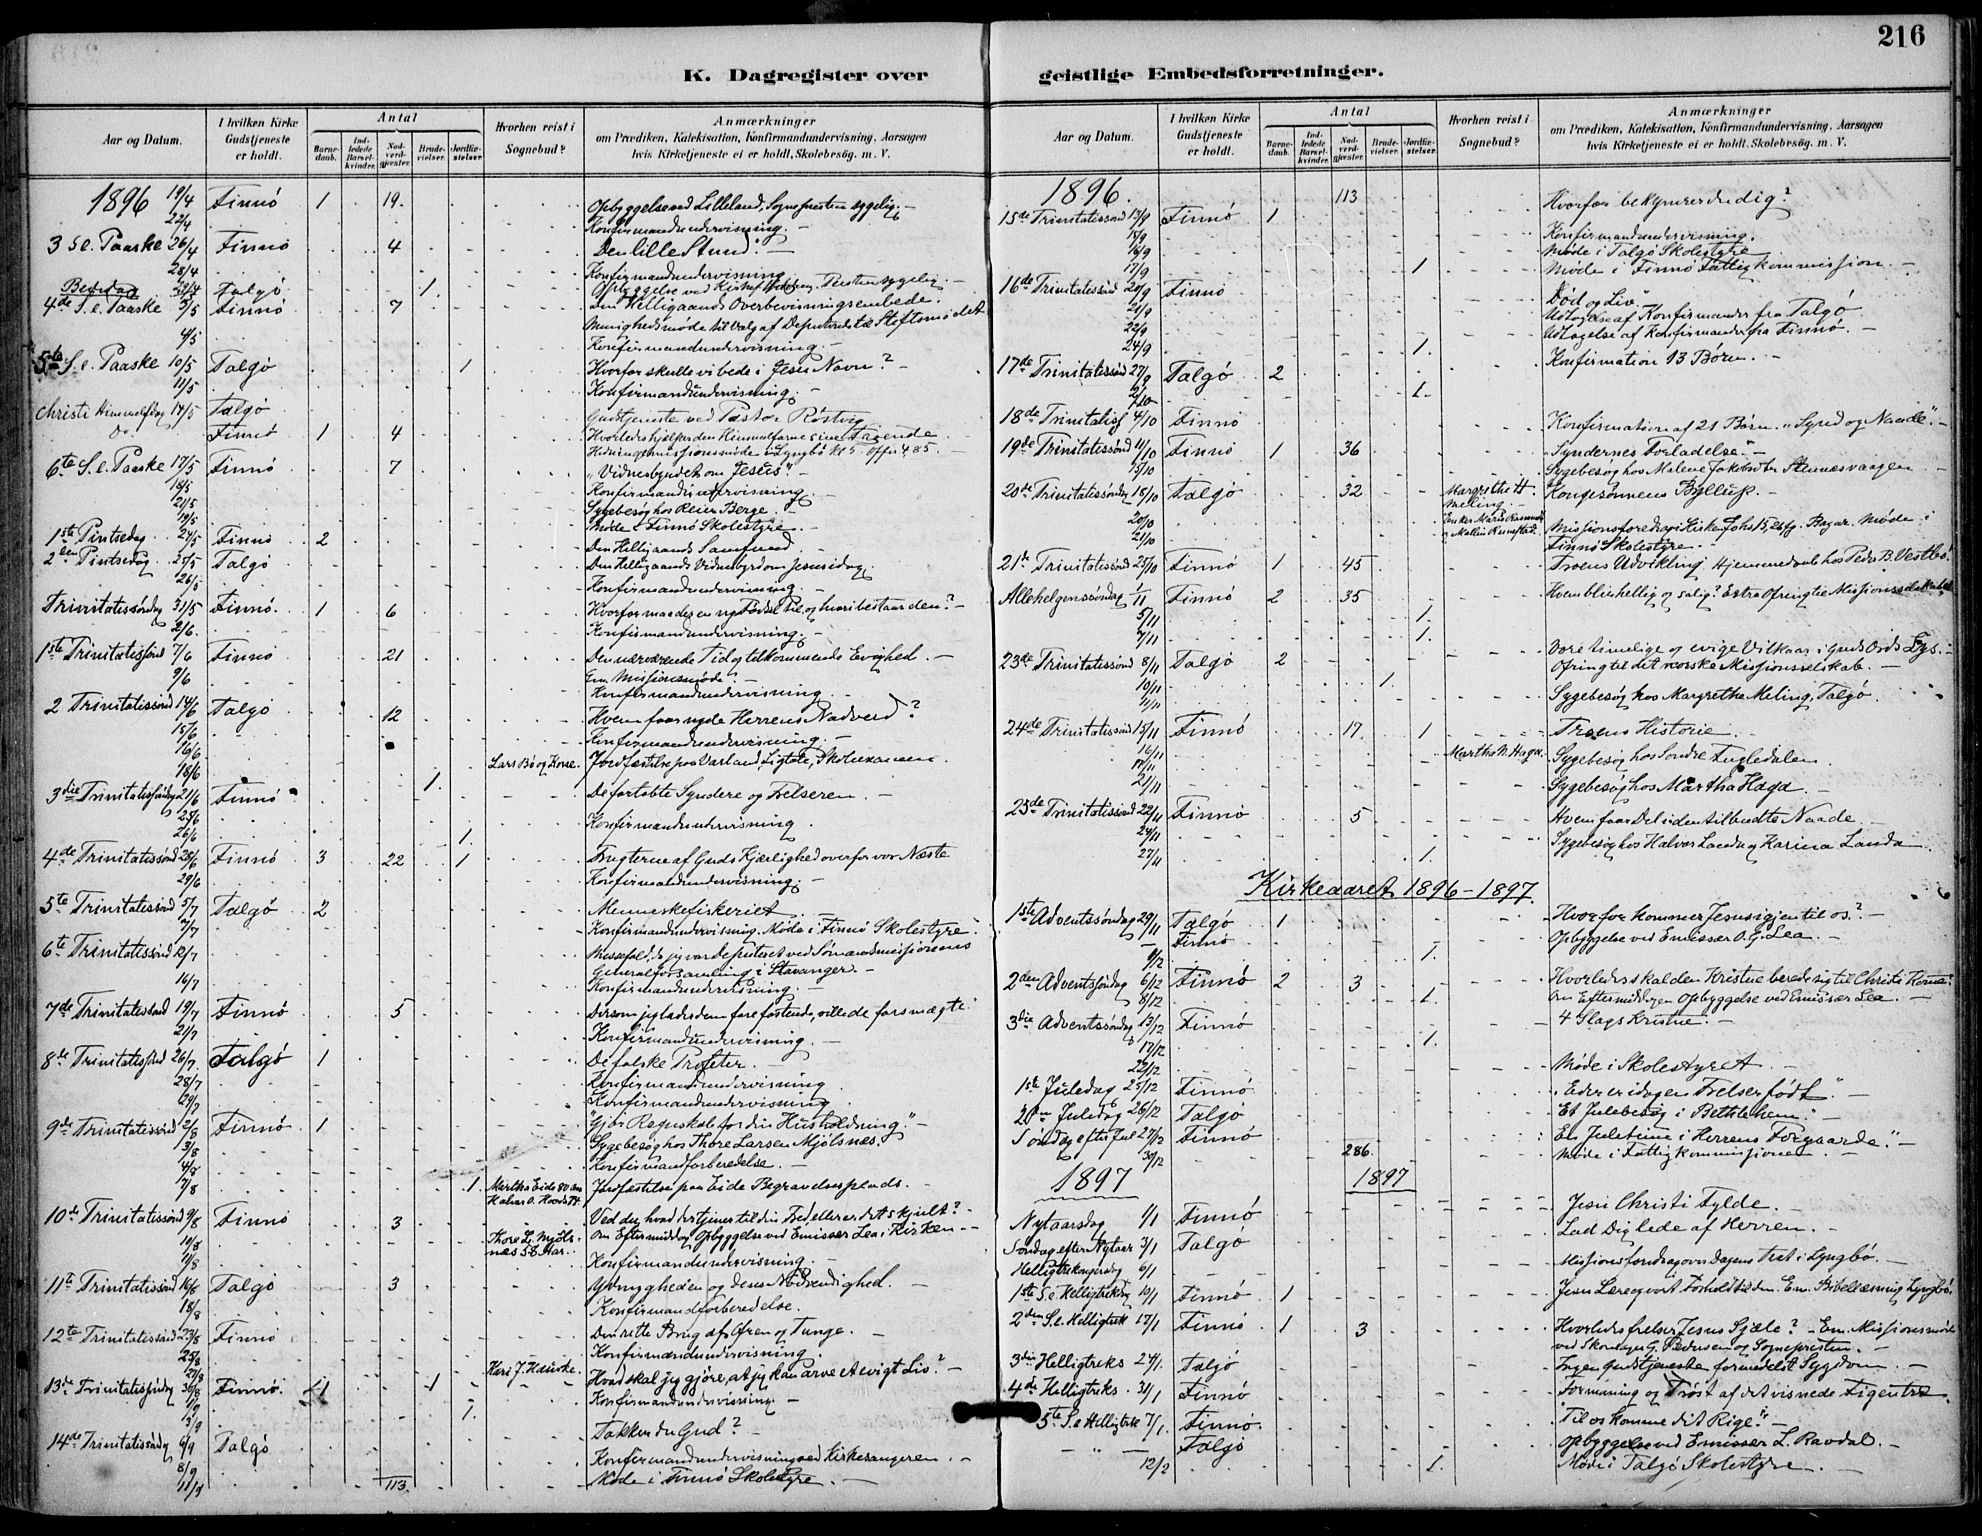 216
K. Dagregister over
Aar og Datum.
I hvilken Kirke Gudstjeneste er holdt.
Antal
Barnedaab.
Indledede Barselkvinder.
Nadverdgjester.
Brudevielser.
Jordfæstelser.
Hvorhen reist i Sognebud?
Anmærkninger
om Prædiken, Katekisation, Konfirmandundervisning, Aarsagen
hvis Kirketjeneste ei er holdt, Skolebesøg. m. V.
1896 19/4 Finnö 1 19. Opbyggelse ved Lilleland, Sognepresten sygelig. -
22/4 Konfirmandundervisning. -
3 S.e. Paaske 26/4 Finnö 4 "Den lille Stund". -
28/4 Konfirmandundervisning
Bededag Talgö 1. Opbyggelse ved
4de S.e. Paaske 3/5 Finnö 7 Den Helligaands Overbevisningsembede.
Menighedsmøde til Valg af Deputerede til Stiftsmødet
4/5 Konfirmandundervisning. -
5te S.e. Paaske 10/5 Talgö 1 Hvorfor skulle vi bede i Jesu Navn? -
11/5 Konfirmandundervisning. -
Christi Himmelfdag 14/5 Talgö Gudstjeneste ved Pastor Röstvig
Do. Finnö 1 4 Hvorledes hjælper den Himmelfarne sine Troende.
6te S.e. Paaske 17/5 Finnö 7 "Vidnesbyrdet om Jesus". -
18/5 Konfirmandundervisning. -
21/5 Sygebesøg hos Reier Berge. -
19/5 Møde i Finnö Skolestyre. -
1ste Pintsedag 24/5 Finnö 2 Den Helligaands Samfund. -
2den Pintsedag 25/5 Talgö Den Helligaands Vidnesbyrd om Jesus idag.
26/5 Konfirmandundervisning
Trinitatissöndag 31/5 Finnö. 1 6 Hvorfor maa der en ny Fødsel til og hvori bestaar den? -
2/6. Konfirmandundervisning. -
1ste Trinitatissönd 7/6 Finnö 21 Den nærværende Tid og tilkommende Evighed. -
Em. Missionsmøde. -
9/6 Konfirmandundervisning. -
2 Trinitatissönd 14/6 Talgö 12 Hvem faar nyde Herrens Nadverd?
15/6 Konfirmandundervisning. -
16/6 Lars Bö og Kone. Jordfæstelse paa Varland, Ligtale, Skoleexamen
18/6 1.
3die Trinitatissöndag 21/6 Finnö De fortabte Syndere og Frelseren -
23/6 Konfirmandundervisning.
26/6 1.
4de Trinitatissönd 28/6 Finnö 3 22 1 Frugterne af Guds Kjærlighed overfor vor Næste
29/6 Konfirmandundervisning. -
5te Trinitatissönd 5/7 Talgö 2 Menneskefiskeriet. -
7/7 Konfirmandundervisning. Møde i Finnö Skolestyre. -
6te Trinitatissönd 12/7 Messefald, da jeg var deputeret ved Sømandsmissionens
Generalforsamling i Stavanger. -
14/7 Konfirmandundervisning. -
7de Trinitatissönd 19/7 Finnö 5 Dersom jeg lader dem fare fastende, ville de forsmægte
21/7 Konfirmandundervisning. -
8de Trinitatissönd 26/7 Talgö 1 De falske Profeter. -
28/7 Konfirmandundervisning
29/7 Konfirmandundervisning
9de Trinitatissönd 2/8 Finnö. 1 "Gjör Regnskab for din Husholdning". -
3/8 Sygebesøg hos Thore Larsen Mjölsnes. -
4/8 Konfirmandforberedelse. -
7/8 1. Martha Eide 80 Aar Jordfæstelse paa Eide Begravelsesplads. -
10de Trinitatissönd 9/8 Finnö 3 Ved du, hvad der tjener til din Fred, eller er det skjult? -
10/8 Thore L. Mjölsnes 58 Aar. Om Eftermiddag Opbyggelse ved Emissær Lea i Kirken -
11/8 Konfirmandundervisning. -
11te Trinitatissönd 16/8 Talgö 3 Ydmygheden og dens Nødvendighed. -
18/8 Konfirmandforberedelse.
12te Trinitatissönd 23/8 Finnö Den rette Brug af Øren og Tunge. -
25/8 Konfirmandundervisning.
13de Trinitatissöndag 30/8 Finnö. 1 1 Hvad skal jeg gjöre, at jeg kan arve et evigt Liv? -
1/9 Konfirmandundervisning -
3/9 1.
14de Trinitatissöndag 6/9 Talgö Takker du Gud?
8/9 Konfirmandundervisning ved Kirkesangeren. -
11/9 Møde i Finnö Skolestyre. -
113.
geistlige Embedsforretninger.
Aar og Datum.
I hvilken Kirke Gudstjeneste er holdt.
Antal
Barnedaab.
Indledede Barselkvinder.
Nadverdgjester.
Brudevielser.
Jordfæstelser.
Hvorhen reist i Sognebud?
Anmærkninger
om Prædiken, Katekisation, Konfirmandundervisning, Aarsagen
hvis Kirketjeneste ei er holdt, Skolebesøg. m. V.
1896. 113
15de Trinitatissönd 13/9 Finnö 1 Hvorfor bekymrer du dig?
15/9 Konfirmandundervisning.
16/9 Møde i Talgö Skolestyre
17/9 1 Møde i Finnö Fattigkommission. -
16de Trinitatissönd 20/9 Finnö "Död og Liv"
21/9 Udtagelse af Konfirmander fra Talgö. -
22/9 Udtagelse af Konfirmander fra Finnö. -
24/9 1.
17de Trinitatissönd 27/9 Talgö 2 Konfirmation 13 Börn. -
2/10 1.
18de Trinitatissö 4/10 Finnö Konfirmation af 21 Börn. "Synd og Naade". -
19de Trinitatissönd 11/10 Finnö 1 36 Syndernes Forladelse. -
15/10 Sygebesøg hos Malene Stennesvaagen
20de Trinitatissöndag 18/10 Talgö 32 Margrethe H. Meling. Kongesönnens Bryllup. -
20/10
21/10 Finnö Skolestyre. -
21de Trinitatissönd 25/10 Finnö 1 45 Troens Udvikling. Hjemmedaab hos Peder B. Vestbö
Allehelgenssöndag 1/11 Finnö 2 35 Hvem blir hellig og salig?
5/11 1.
7/11 1.
23de Trinitatissönd 8/11 Talgö 2 Vore timelige og evige Vilkaar i Guds Ords Lys. -
Ofring til det norske Missionsselskab. -
10/11 1.
11/11 Sygebesøg hos Margrethe Meling, Talgö.
24de Trinitatissönd 15/11 Finnö 17. 1 Troens Historie. -
16/11 Martha N. Haga. Sygebesøg hos Sondre Fugledalen
21/11 Sygebesøg hos Martha Haga. -
25de Trinitatissönd 22/11 Finnö 5 Hvem faar Del i den tilbudte Naade. -
24/11 Sygebesøg hos Halvor Landa og Karina Landa
27/11 1.
Kirkeaaret 1896-1897.
1ste Adventssöndag 29/11 Talgö 1 Hvorfor kommer Jesus igjen til os? -
- Finnö Opbyggelse ved Emissær O.G. Lea. -
9/12 1.
2den Adventssöndag 6/12 Finnö 2 3 Hvorledes skal den Kristne berede sig til Christi Komme.
8/12 1. Om Eftermiddagen Opbyggelse ved Emissær Lea. -
3die Adventssöndag 13/12 Finnö 4 Slags Kristne. -
17/12 1.
22/12 Møde i Skolestyret. -
1ste Juledag 25/12 Finnö "Eder er idag en Frelser født".
2den Juledag 26/12 Talgö "Et Julebesög i Bethlehem".
Söndag efter Jul 27/12 Finnö "En Juletime i Herrens Forgaarde." -
30/12 286. Møde i Fattigkommissionen. -
1897 1897
Nytaarsdag 1/1 Finnö Jesu Christi Fylde. -
Söndag efter Nytaar 3/1 Talgö Lad Dig lede af Herren. -
Helligtrekongersdag 6/1 Missionsforedrag over Dagens Text i Lyngbö. -
1ste S.e. Helligtrekdag 10/1 Finnö 1
2den S.e. Helligtrek 17/1 Finnö 1 3 Hvorledes frelser Jesus Sjæle? - Em. Missionsmøde
ved G. Pedersen og Sognepresten. -
3die Helligtreks 24/1. Talgö Ingen Gudstjeneste formedelst Sygdom. -
4de Helligtreks 31/1 Finnö Formaning og Trøst af det visnede Figentræ.
5te S.e. Helligtrek 7/1. Finnö. "Til os komme dit Rige". -
- " - Talgö Opbyggelse ved Emissær L. Ravdal. -
12/2 1. Møde i Talgö Skolestyre. -